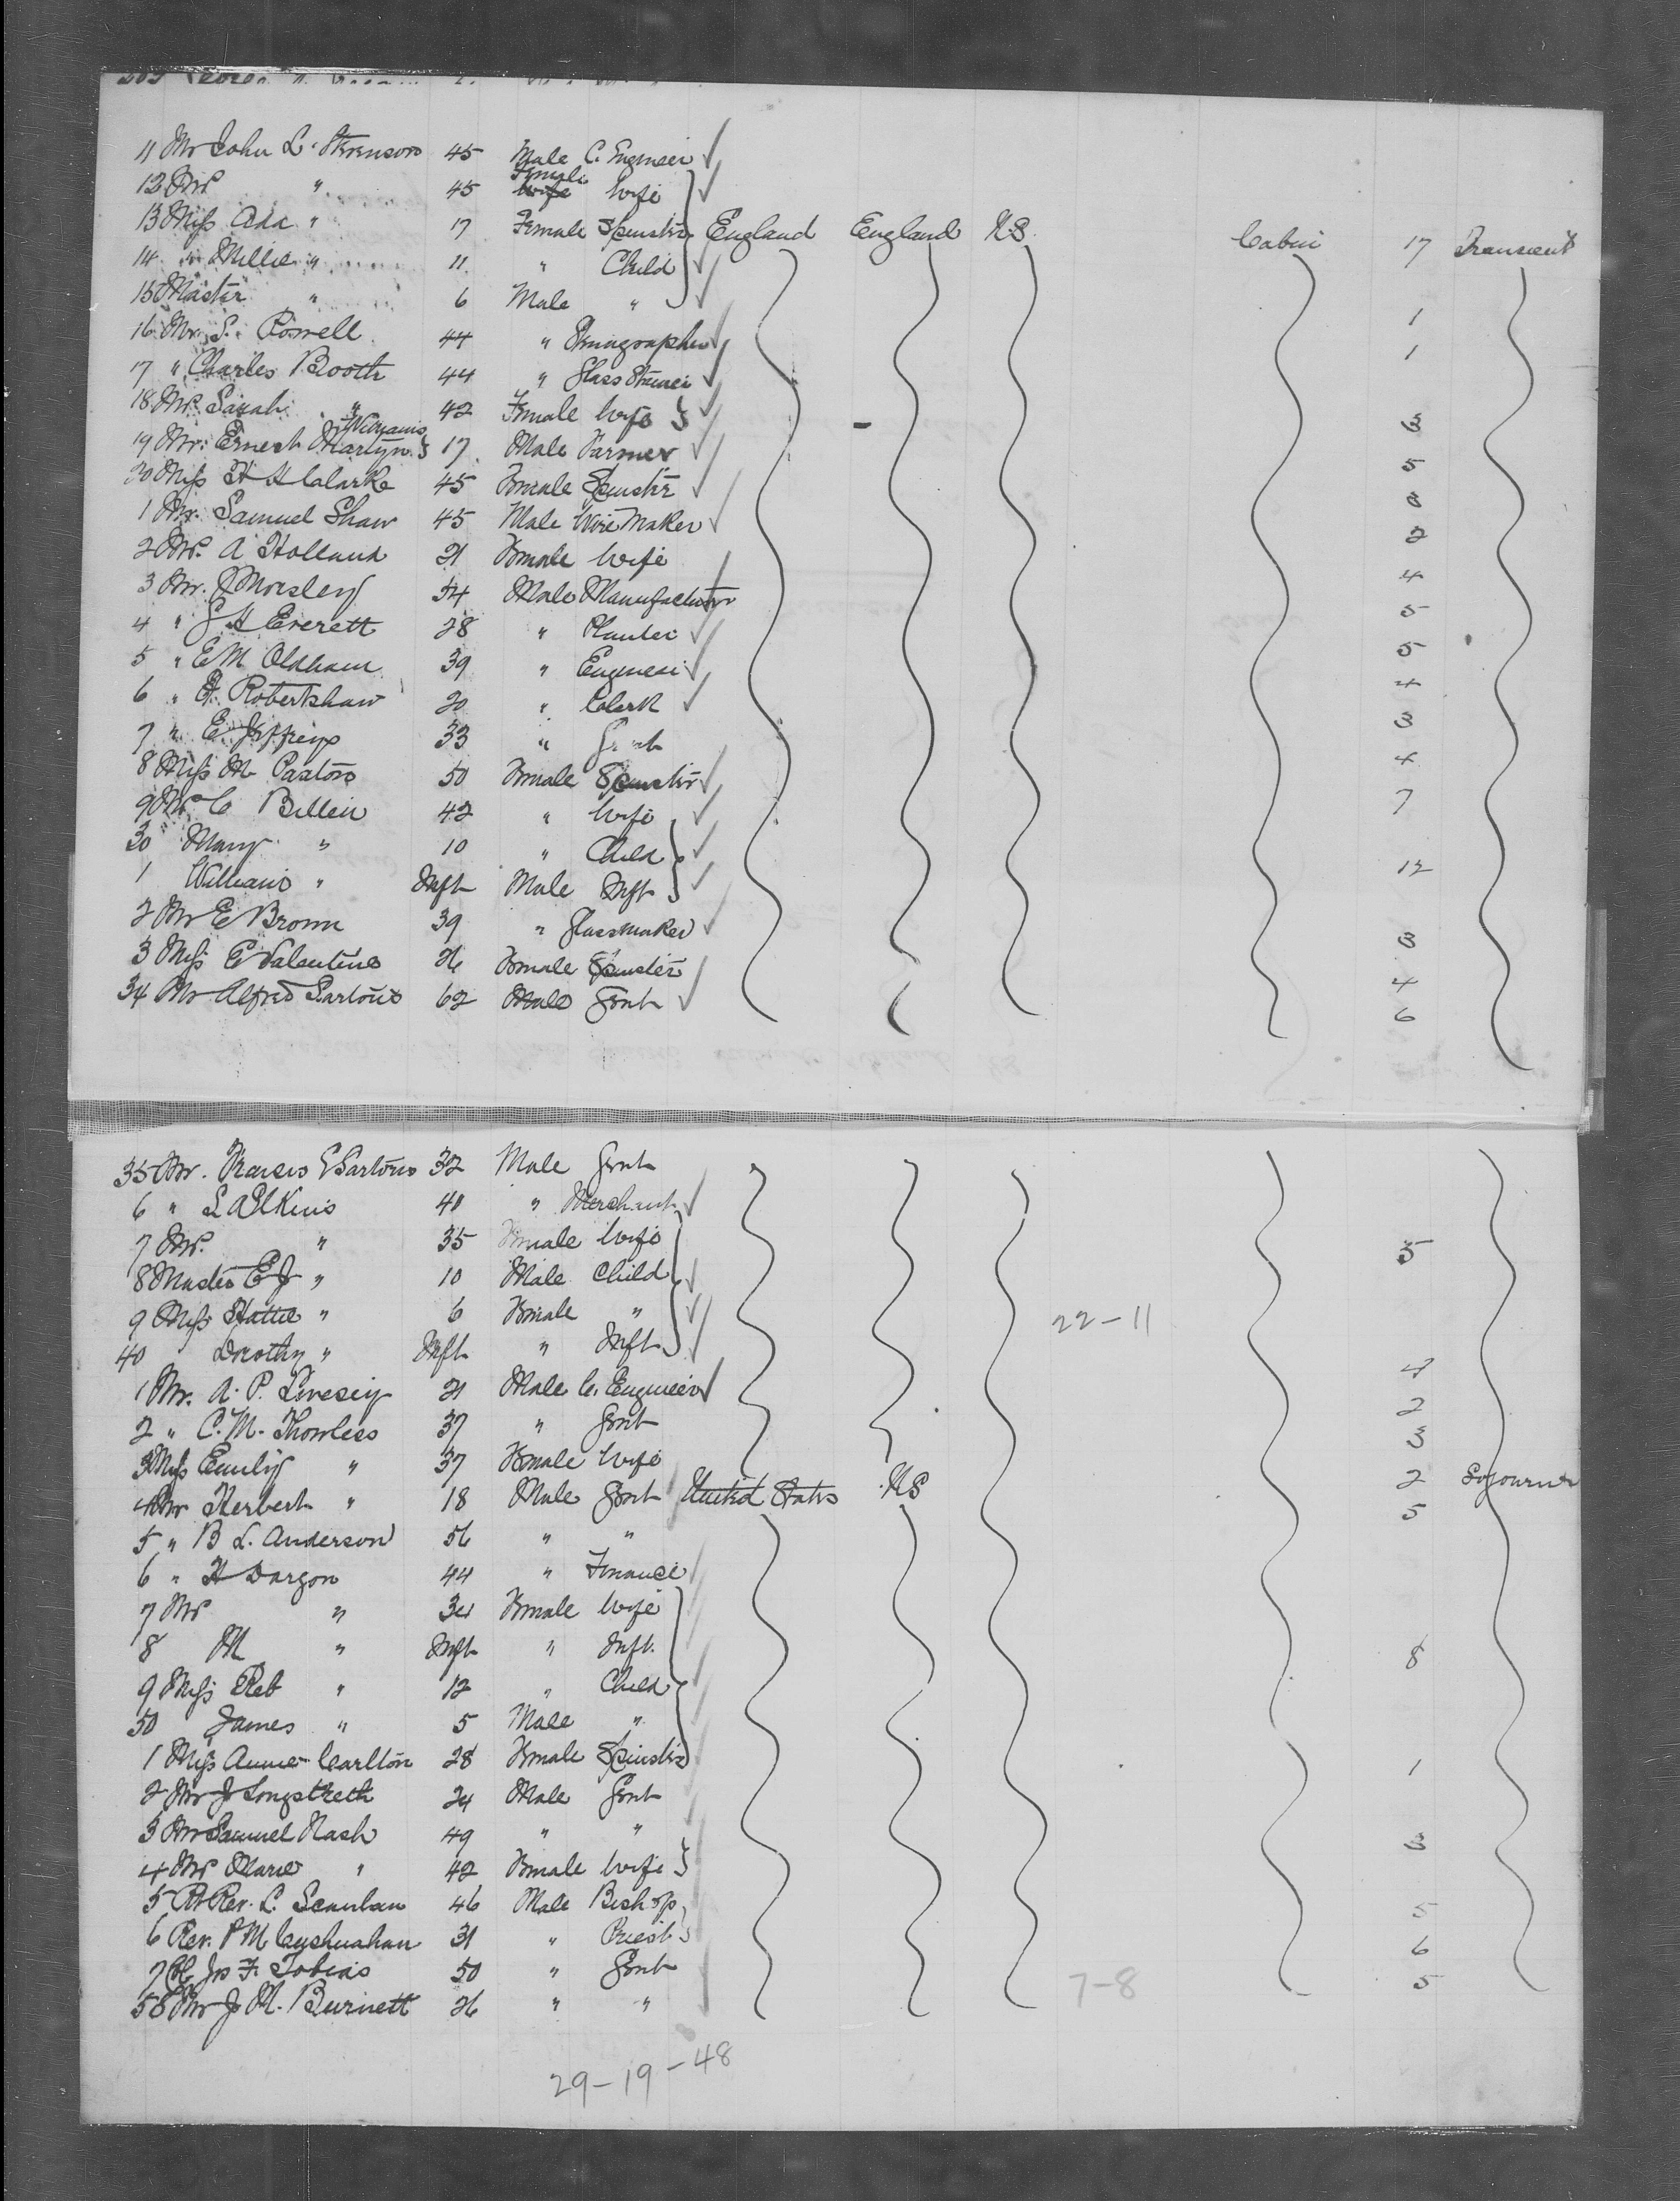 11 Mr John L. Stevenson 45 Male C. Engineer
12 Mrs " 45 Female wife Wife
13 Miss Ada " 17 Female Spinster England England U.S. Cabin 17 Transient
14 " Millie " 11 " Child
15 Master " 6 Male "
16 Mr S. Powell 44 " Stenographer 1
17 " Charles Booth 44 " Glass 1
18 Mrs Sarah " 42 Female Wife
19 Mr. Ernest Martyn Williams 17 Male Farmer 3
20 Miss H Clarke 45 Female Spinster 5
1 Mr. Samuel Shaw 45 Male Wire Maker 3
2 Mrs. A Holland 21 Female Wife 2
3 Mr. J Morsley 34 Male Manufacturer 4
4 " G H Everett 28 " Planter 5
5 " E M Oldham 39 " Engineer 5
6 " H. Robertshaw 20 " Clerk 4
7 " E Jeffreys 33 " Gent 3
8 Miss M Paxton 50 Female Spinster 4
9 Mrs C Billein 42 " Wife 7
30 Mary " 10 " Child
1 William " Inft Male Inft 12
2 Mr E Brown 39 " Glassmaker
3 Miss E Valentine 26 Female Spinster 3
34 Mr Alfred Sartoris 62 Male Gent 4
6
35 Mr. Francis Sartoris 32 Male Gent
6 " L A Elkins 40 " Merchant
7 Mrs. " 35 Female Wife 5
8 Master E J " 10 Male Child
9 Miss Hattie " 6 Female " 22-11
40 Dorothy " Inft " Inft
1 Mr. A. P. Livesey 21 Male C. Engineer 4
2 " C. M. Thowless 37 " Gent 2
3 Miss Emily " 37 Female Wife 3
4 Mr Herbert " 18 Male Gent United States US 2 Sojourner
5 " B L. Anderson 56 " " 5
6 " H Dargon 44 " Finance
7 Mrs " 34 Female Wife
8 M " Inft " Inft. 8
9 Miss Reb " 12 " Child
50 James " 5 Male "
1 Miss Annie Carlton 28 Female Spinster 1
2 Mr J Longstreth 24 Male Gent
3 Mr Samuel Nash 49 " " 3
4 Mrs Marie " 42 Female Wife
5 Rt Rev. L. Scanlan 46 Male Bishop 5
6 Rev. P M Cushnahan 31 " Priest 6
7 Col Jos F. Tobias 50 " Gent 7-8 5
58 Mr J M. Burnett 26 " "
29-19-48